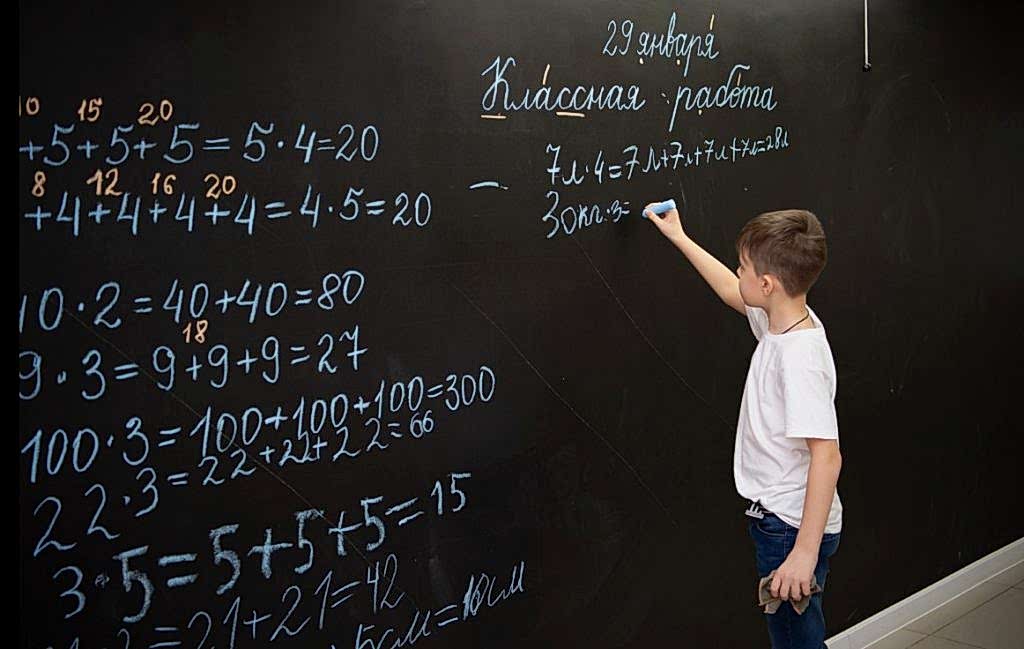 29 января
Классная работа
7л·4=7л+7л+7л+7л=28л
30кг·3=
10 15 20
+5+5+5=5·4=20
8 12 16 20
+4+4+4+4=4·5=20
40·2=40+40=80
18
9·3=9+9+9=27
100·3=100+100+100=300
22·3=22+22+22=66
3·5=5+5+5=15
=21+21=42
+5см=10см